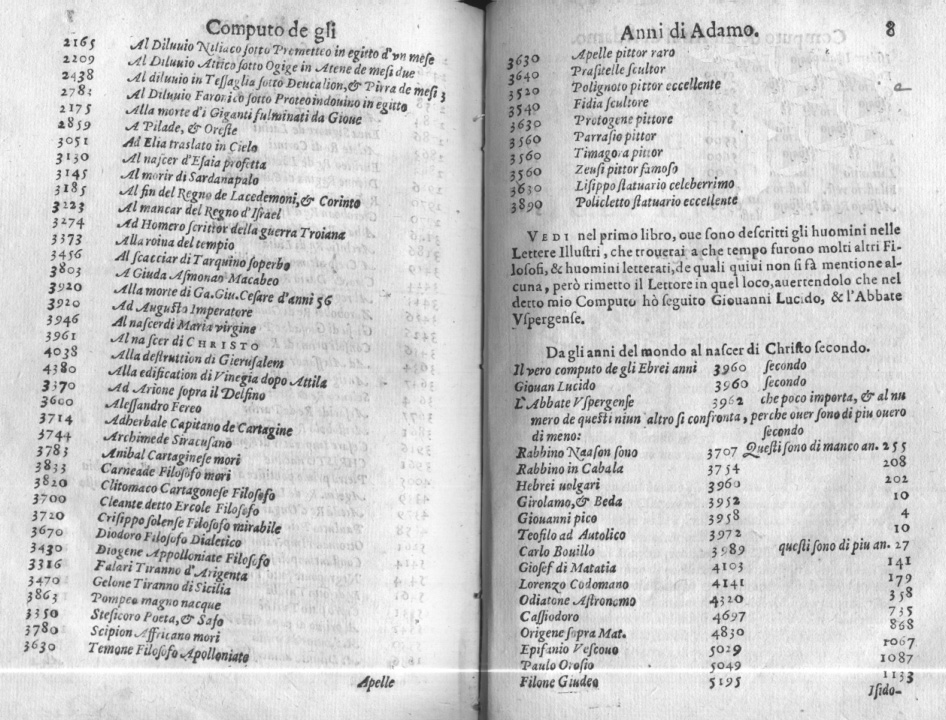 Computo de gli
2165 Al Diluuio Niliaco sotto Premetteo in egitto d'vn mese
2209 Al Diluuio Attico sotto Ogige in Atene de mesi due
2438 Al diluuio in Tessaglia sotto Deucalion, & Pirra de mesi 3
2783 Al Diluuio Farorico sotto Proteo indouino in egitto
2175 Alla morte d'i Giganti fulminati da Gioue
2859 A Pilade, & Oreste
3051 Ad Elia traslato in Cielo
3130 Al nascer d'Esaia profetta
3145 Al morir di Sardanapalo
3185 Al fin del Regno de Lacedemoni, & Corinto
3223 Al mancar del Regno d'Israel
3274 Ad Homero scrittor della guerra Troiana
3373 Alla roina del tempio
3456 Al scacciar di Tarquino soperbo
3803 A Giuda Asmonao Macabeo
3920 Alla morte di Ga. Giu. Cesare d'anni 56
3920 Ad Augusto Imperatore
3946 Al nascer di Maria virgine
3961 Al nascer di CHRISTO
4038 Alla destruttion di Gierusalem
4380 Alla edification di Vinegia dopo Attila
3370 Ad Arione sopra il Delfino
3600 Alessandro Fereo
3714 Adherbale Capitano de Cartagine
3744 Archimede Siracusano
3783 Anibal Cartaginese mori
3833 Carneade Filosofo mori
3820 Clitomaco Cartagonese Filosofo
3700 Cleante detto Ercole Filosofo
3720 Crisippo solense Filosofo mirabile
3670 Diodoro Filosofo Dialetico
3430 Diogene Appolloniate Filosofo
3316 Falari Tiranno d'Arigenta
3470 Gelone Tiranno di Sicilia
3863 Pompeo magno nacque
3350 Stesicoro Poeta, & Safo
3780 Scipion Affricano mori
3630 Temone Filosofo Apolloniato
Apelle
Anni di Adamo. 8
3630 Apelle pittor raro
3640 Prasitelle scultor
3520 Polignoto pittor eccellente
3540 Fidia scultore
3630 Protogene pittore
3560 Parrasio pittor
3560 Timagora pittor
3560 Zeusi pittor famoso
3630 Lisippo statuario celeberrimo
3890 Policletto statuario eccellente
VEDI nel primo libro, oue sono descritti gli huomini nelle
Lettere Illustri, che trouerai a che tempo furono molti altri Fi-
losofi, & huomini letterati, de quali quiui non si fà mentione al-
cuna, però rimetto il Lettore in quel loco, auertendolo che nel
detto mio Computo hò seguito Giouanni Lucido, & l'Abbate
Vspergense.
Da gli anni del mondo al nascer di Christo secondo.
Il vero computo de gli Ebrei anni 3960 secondo
Giouan Lucido 3960 secondo
L'Abbate Vspergense 3962 che poco importa, & al nu
mero de questi niun altro si confronta, perche ouer sono di piu ouero
di meno: secondo
Rabbino Naason sono 3707 Questi sono di manco an. 255
Rabbino in Cabala 3754 208
Hebrei uolgari 3960 202
Girolamo, & Beda 3952 10
Giouanni pico 3958 4
Teofilo ad Autolico 3972 10
Carlo Bouillo 3989 questi sono di piu an. 27
Giosef di Matatia 4103 141
Lorenzo Codomano 4141 179
Odiatone Astronomo 4320 358
Cassiodoro 4697 735
Origene sopra Mat. 4830 868
Epifanio Vescouo 5029 1067
Paulo Orosio 5049 1087
Filone Giudeo 5195 1133
Isido-